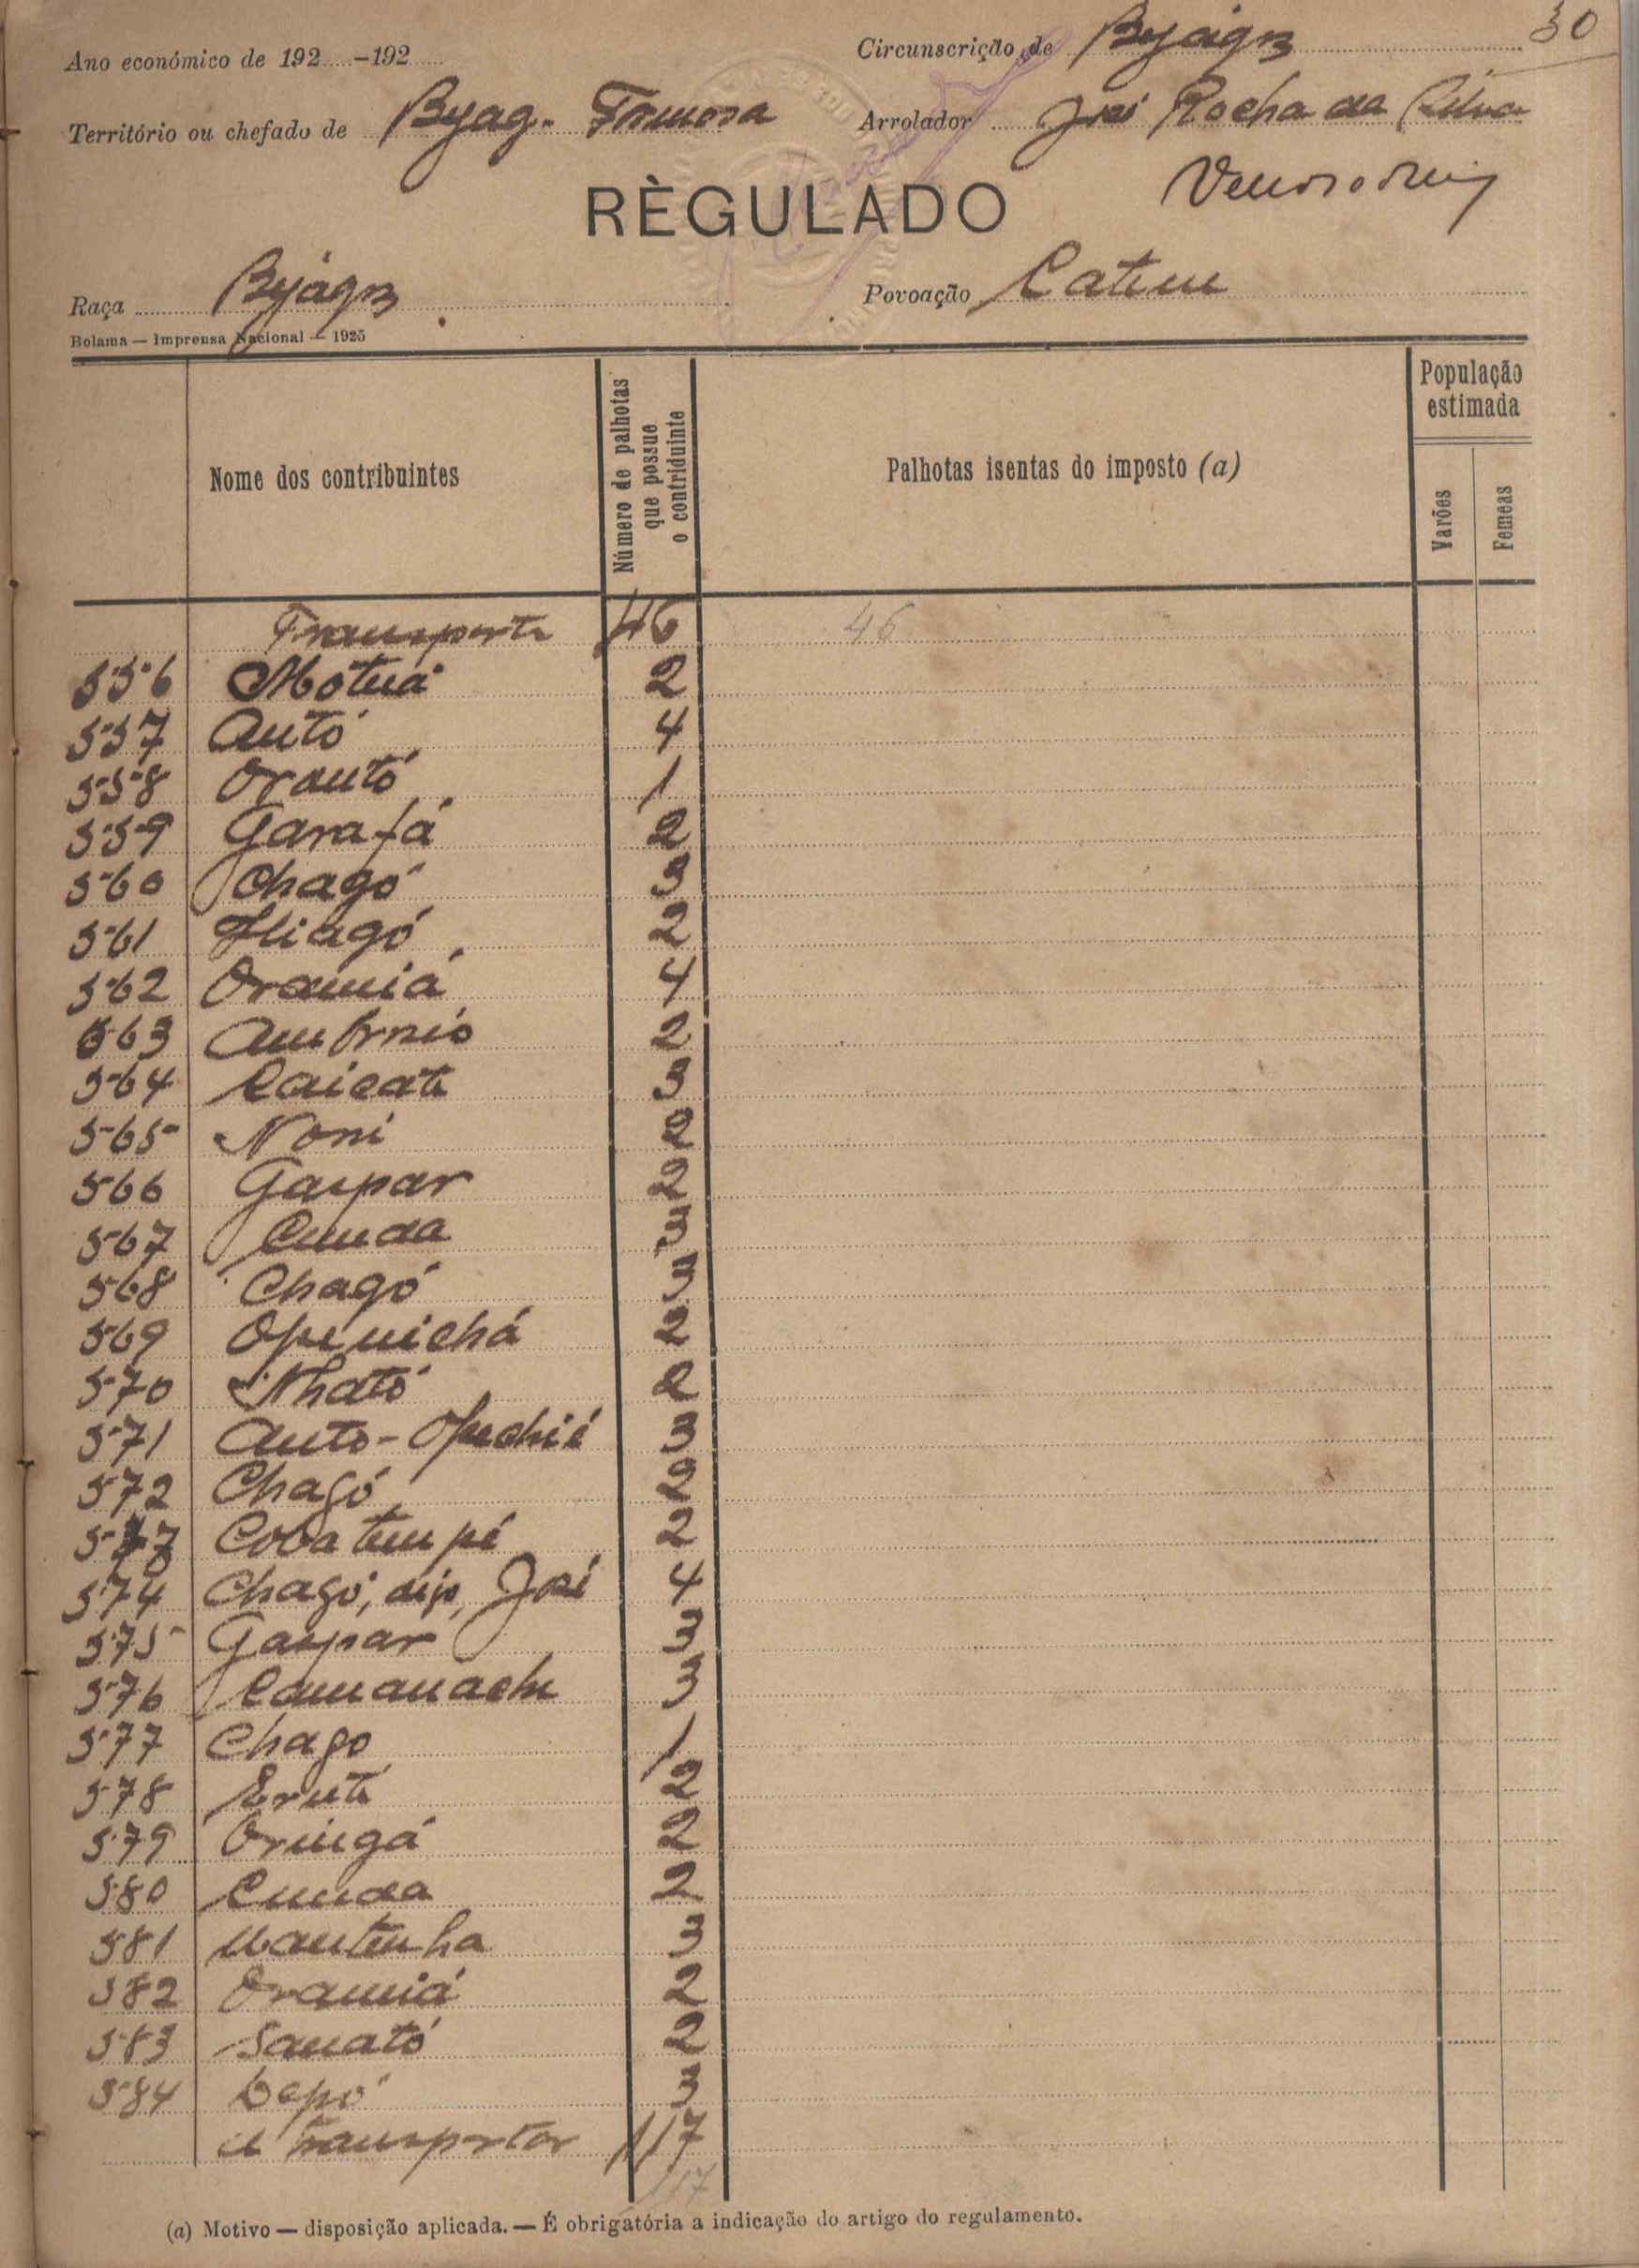 30
Ano económico de 192 -192 Circunscrição de Byágoz
Território ou chefado de Byag. Formosa Arrolador José Rocha da Silva
RÈGULADO
Raça Byágoz Povoação Catem
Bolama — Imprensa Nacional — 1925
Nome dos contribuintes Número de palhotas que possue o contriduinte Palhotas isentas do imposto (a) População estimada Varões Femeas
Transporte 46 46
556 Motuá 2
557 Autó 4
558 Orautó 1
559 Garafá 2
560 Chagó 3
561 Hiagó 2
562 Oramiá 4
563 António 2
564 Caicate 3
565 Noni 2
566 Gaspar 2
567 Cunda 3
568 Chagó 3
569 Openichá 2
570 Nható 2
571 Auto-Opechié 3
572 Chagó 2
573 Cobatempé 2
574 Chagó, digo, José 4
575 Gaspar 3
576 Camanache 3
577 Chago 1
578 Erute 2
579 Oringá 2
580 Cunda 2
581 Mantenha 3
582 Oramiá 2
583 Sanató 2
584 Depó 3
A transportar 117
117
(a) Motivo — disposição aplicada. — É obrigatória a indicação do artigo do regulamento.